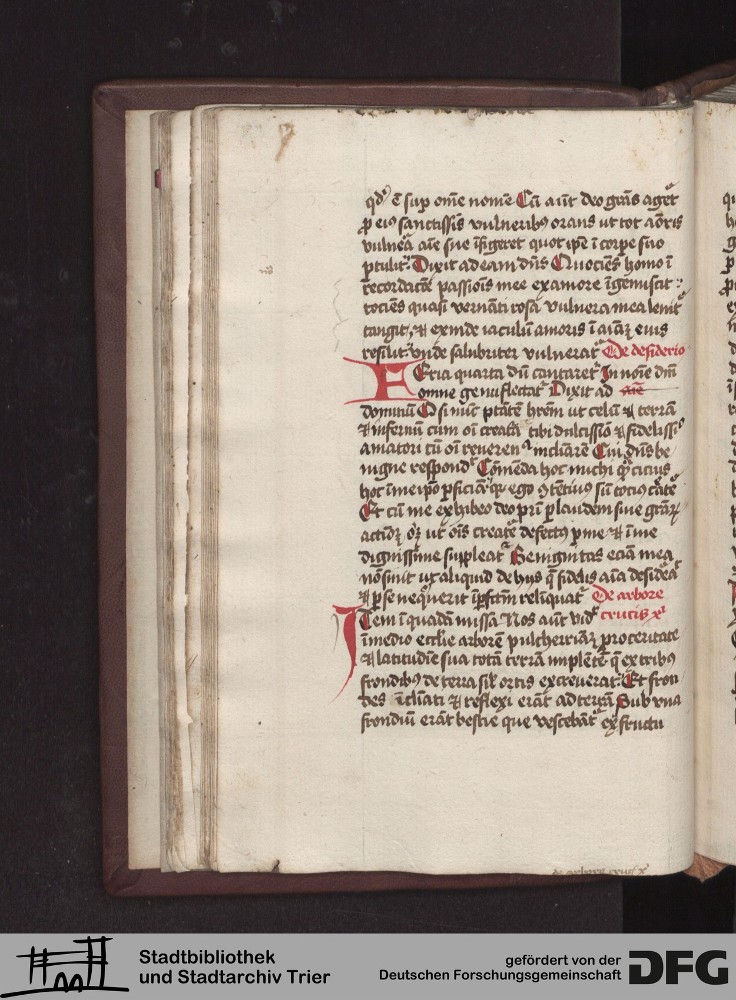 qd' ē sup om̄e nomē Cū aūt deo grās aget
p eiꝰ sanctissīs vulneribꝰ orans ut tot
vulnea aīe sue īfigeret quot ipe ī corpe suo
ptulit. Dixit ad eam dn̄s Quociēs homo ī
recordacōe passiōis mee ex amore īgemiscit
tociēs quasi vernāti rosa vulnera mea lenit
tangit, & exinde iaculū amoris ī aīaꝫ eius
resilit vnde salubriter vulnerat De desiderio
Feria quarta dū cantaret In noīe dn̄i
omne genuflectat Dixit ad
dominū O si nūc ptātē hrēm ut celū & terrā
& infernū cum oī creatā tibi dulcissīo & fidelissīo
amatori cū oī reverentia inclināre Cui dn̄s be
nigne respond Cōmēda hoc michi
hoc ī meipō pficiā qꝛ ego ꝯtētiuꝰ sū tociꝰ
Et cū me exhibeo deo prī p laudem siue grāꝝ
actiōꝫ oꝫ ut oīs create defectꝰ p me & ī me
dignissime suppleat Benignitas eciā mea
nō sinit ut aliquid de hijs q̄ fidelis aīa desidea
& p se neqͥuerit īpfctm relīquat De arbore
Item ī quadā missa Nos aūt vid crucis xͥ
ī medio ecclie arborē pulcherrimaꝫ proceritate
& latitudīe sua totā terrā implētē q̄ ex tribꝰ
frondibꝰ de terra sīl ortis excreuerat. Et fron
des īclīati & reflexi erāt ad terrā Sub vna
frondiū erāt bestie que vescebāt ex fructu
de arbore crucis xͥ
Stadtbibliothek
und Stadtarchiv Trier
gefördert von der
Deutschen Forschungsgemeinschaft
DFG